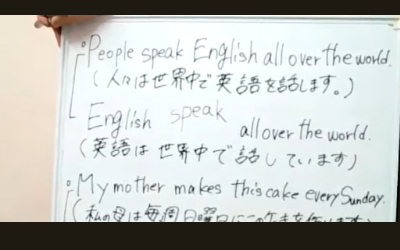 People speak English all over the world.
(人々は世界中で英語を話します。)
English speak all over the world.
(英語は世界中で話しています)
My mother makes this cake every Sunday.
(私の母は毎週日曜日にこのケーキを作ります)